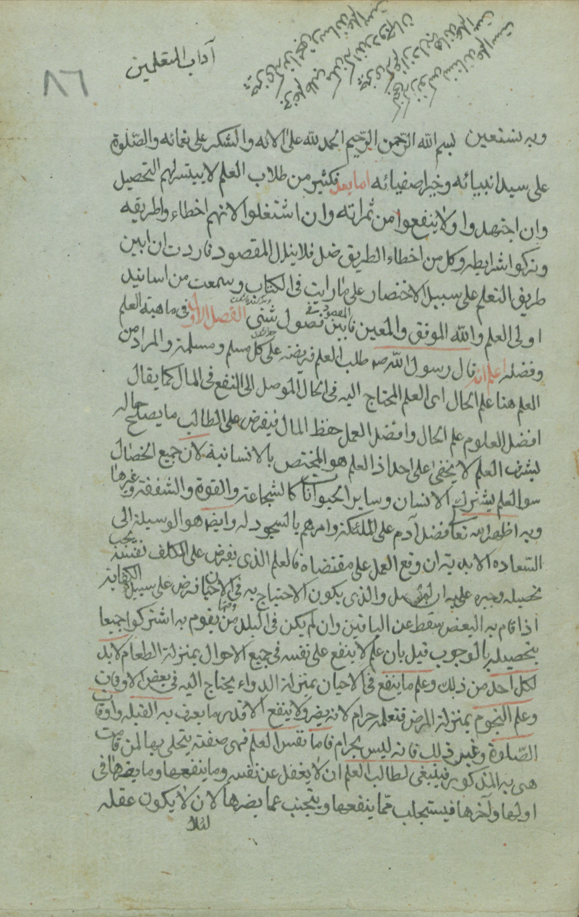 آداب المتعلمین
٨٦
وبه نستعین بسم الله الرّحمن الرّحیم الحمد لله علی الائه والشکر علی نعمائه والصّلوة
علی سید انبیائه وخیر اصفیائه اما بعد فکثیر من طلاب العلم لا یتیسر لهم التحصیل
وان اجتهدوا ولا ینفعوا من ثمراته وان اشتغلوا لانهم اخطاءوا طریقه
وترکوا شرایطه وکل من اخطاء الطریق ضل فلا ینال المقصود فاردت ان ابین
طریق التعلم علی سبیل الاختصار علی ما رایت فی الکتاب وسمعت من اساتید
اولی العلم والله الموفق والمعین فابین فصول شتی الفصل الاول فی ماهیة العلم
وفضله اعلم انه قال رسول الله ص طلب العلم فریضة علی کل مسلم ومسلمة والمراد من
العلم هنا علم الحال ای العلم المحتاج الیه فی الحال الموصل الی النفع فی المال کما یقال
افضل العلوم علم الحال وافضل العمل حفظ المال فیفرض علی الطالب ما یصلح حاله
لشرف العلم لا یخفی علی احد اذ العلم هو المختص بالانسانیة لان جمیع الخصال
سوی العلم یشترک الانسان وسایر الحیوانات کالشجاعة والقوة والشفقة وغیرها
وبه اظهر الله تعا فضل آدم علی الملئکة وامرهم بالسجود له وایضا هو الوسیلة الی
السعادة الابدیة ان وقع العمل علی مقتضاه فالعلم الذی یفرض علی المکلف بعینه یجب
تحصیله وجبره علیه ان لم یحصل والذی یکون الاحتیاج به فی الاحیان فرض علی سبیل الکفایة
اذا قام به البعض سقط عن الباقین وان لم یکن فی البلد من یقوم به اشترکوا جمیعا
بتحصیله بالوجوب قیل بان علم لا ینفع علی نفسه فی جمیع الاحوال بمنزلة الطعام لا بد
لکل احد من ذلک وعلم ما ینفع فی الاحیان بمنزلة الدواء یحتاج الیه فی بعض الاوقات
وعلم النجوم بمنزلة المرض فتعلمه حرام لانه یضر ولا ینفع الا قدر ما یعرف به القبلة واوقات
الصّلوة وغیر ذلک فانه لیس بحرام فاما نفس العلم فهی صفة یتجلی بها لمن قامت
هی به المذکور فینبغی لطالب العلم ان لا یغفل عن نفسه وما ینفعها وما یضرها فی
اولها وآخرها فیستجلب مما ینفعها ویتجنب عما یضرها لان لا یکون عقله
لئلا